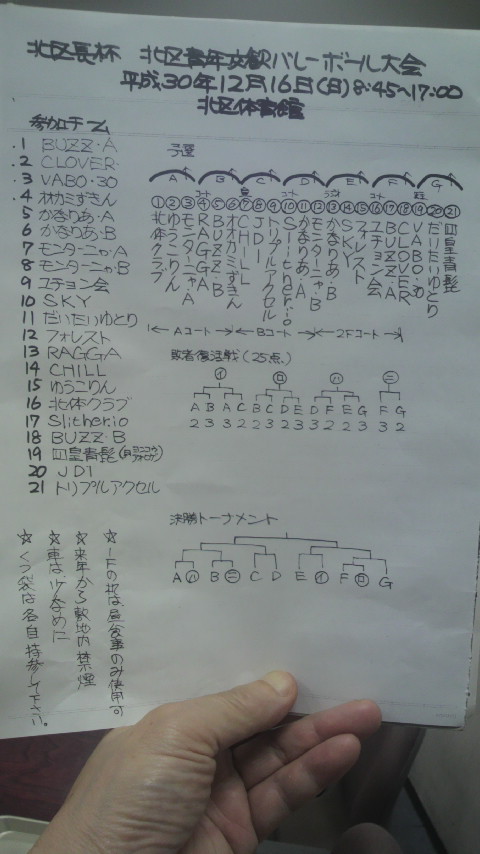 北区長杯 北区青年交歓バレーボール大会
平成30年12月16日(日)8:45~17:00
北区体育館
参加チーム
.1 BUZZ・A
.2 CLOVER・
.3 VABO・30
.4 オオカミずきん
5 かきりあ・A
6 かきりあ・B
7 モンターニャ・A
8 モンターニャ・B
9 ユチョン会
10 SKY
11 だいたいゆとり
12 フォレスト
13 RAGGA
14 CHILL
15 ゆうこりん
16 北体クラブ
17 Slither.io
18 BUZZ・B
19 皇青髭
20 JD1
21 トリプルアクセル
予選
A B C D E F G
① ② ③ ④ ⑤ ⑥ ⑦ ⑧ ⑨ ⑩ ⑪ ⑫ ⑬ ⑭ ⑮ ⑯ ⑰ ⑱ ⑲ ⑳ ㉑
北体クラブ
ゆうこりん
モンターニャ・A
RAGGA
BUZZ・B
オオカミずきん
CHILL
JD1
トリプルアクセル
Slither.io
かきりあ・A
モンターニャ・B
かきりあ・B
SKY
フォレスト
ユチョン会
BUZZ・A
CLOVER
VABO・30
だいたいゆとり
皇青髭
Aコート Bコート 2Fコート
敗者復活戦(25点)
イ ロ ハ ニ
A B A C B C D E D F E G F G
2 3 3 2 2 3 2 3 2 3 2 2 3 2
決勝トーナメント
A ハ B ニ C D E イ F ロ G
☆1Fの和は、昼食事のみ使用可
☆来年から敷地内禁煙
☆車はつけづめに
☆くつ袋は各自持参して下さい。